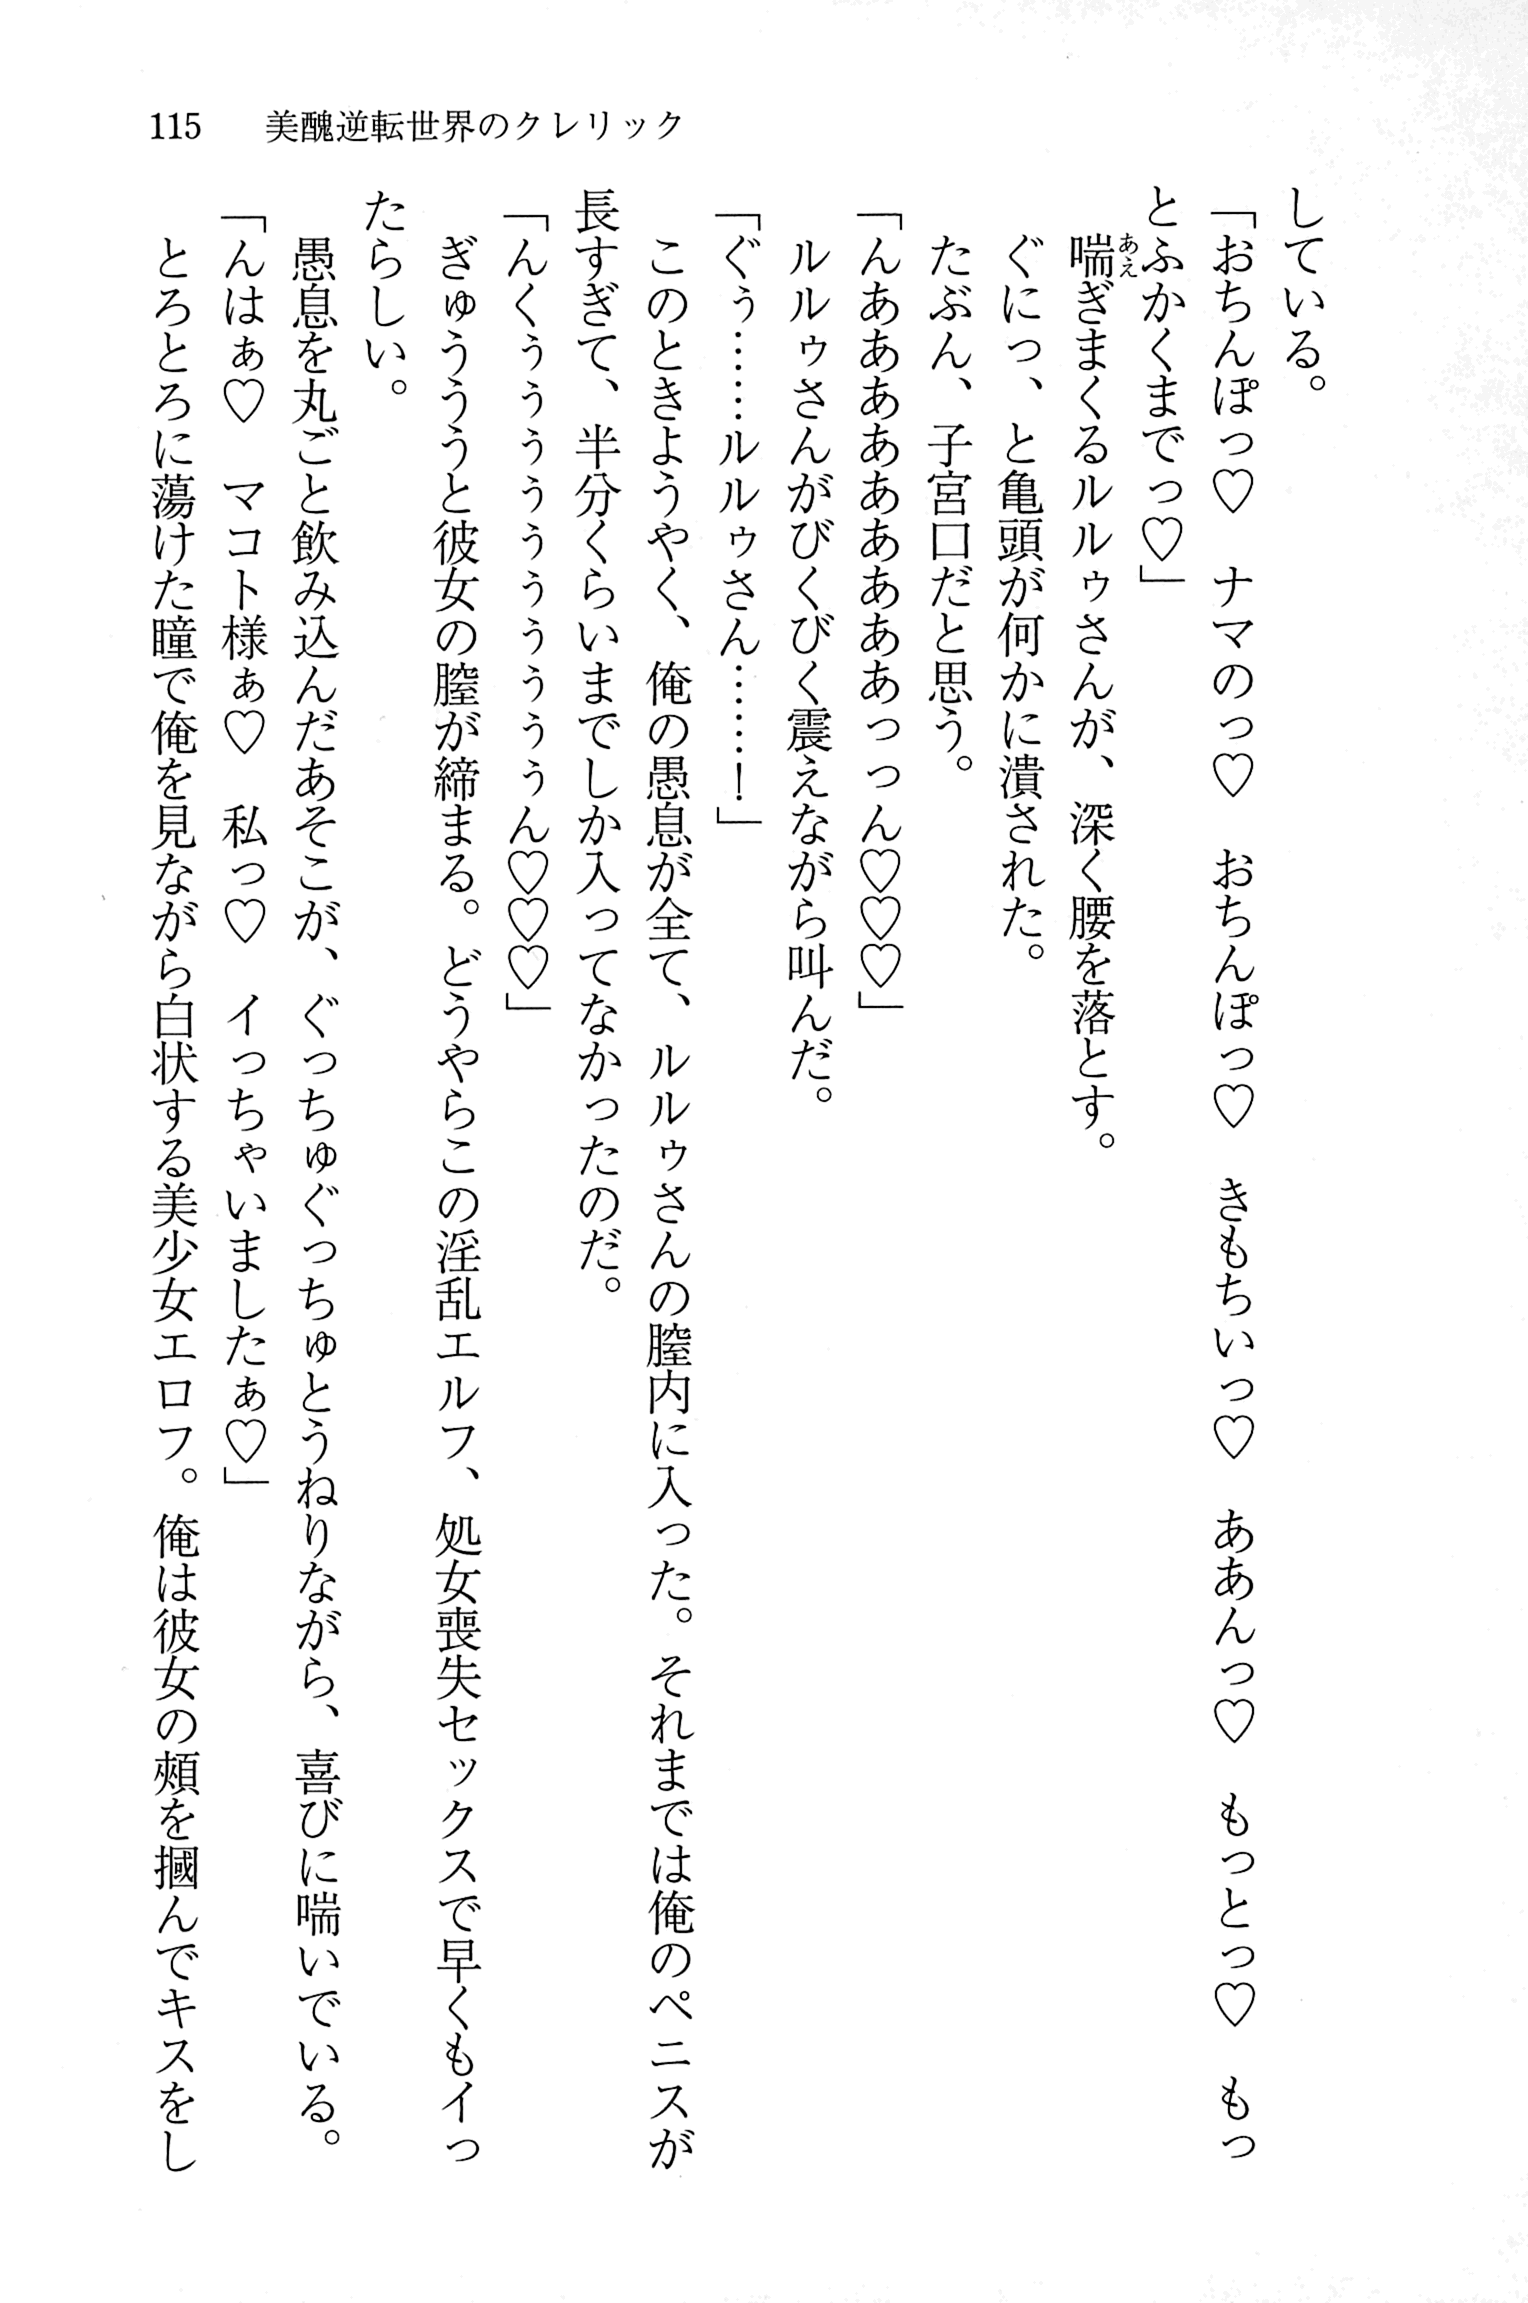 115 美醜逆転世界のクレリック
している。
「おちんぽっ♡　ナマのっ♡　おちんぽっ♡　きもちいっ♡　ああんっ♡　もっとっ♡　もっ
とふかくまでっ♡」
喘ぎまくるルルゥさんが、深く腰を落とす。
ぐにっ、と亀頭が何かに潰された。
たぶん、子宮口だと思う。
「んああああああああああっっん♡♡♡」
ルルゥさんがびくびく震えながら叫んだ。
「ぐぅ……ルルゥさん……！」
このときようやく、俺の愚息が全て、ルルゥさんの膣内に入った。それまでは俺のペニスが
長すぎて、半分くらいまでしか入ってなかったのだ。
「んくぅぅぅぅぅぅぅぅぅぅん♡♡♡」
ぎゅうううと彼女の膣が締まる。どうやらこの淫乱エルフ、処女喪失セックスで早くもイっ
たらしい。
愚息を丸ごと飲み込んだあそこが、ぐっちゅぐっちゅとうねりながら、喜びに喘いでいる。
「んはぁ♡　マコト様ぁ♡　私っ♡　イっちゃいましたぁ♡」
とろとろに蕩けた瞳で俺を見ながら白状する美少女エロフ。俺は彼女の頰を摑んでキスをし